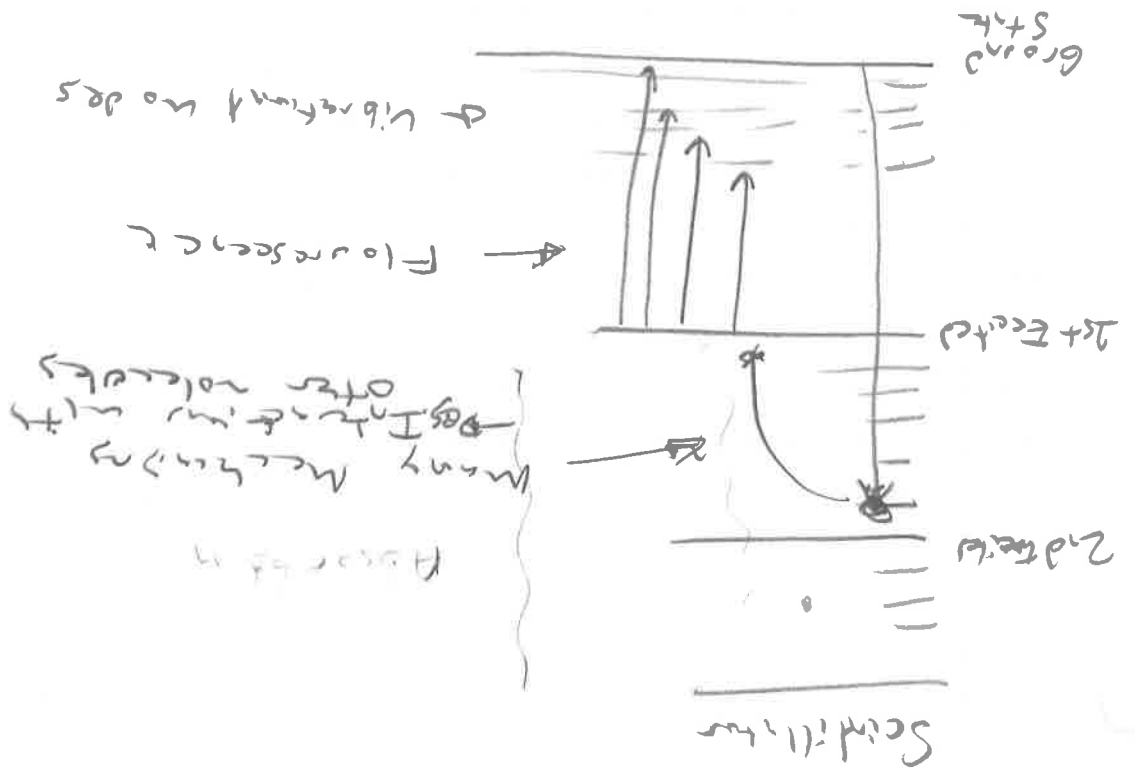 Scintillator
2nd Excited
1st Excited
Ground
State
Many Mechanisms
Interactions with
other molecules
Flourescence
Vibrational modes